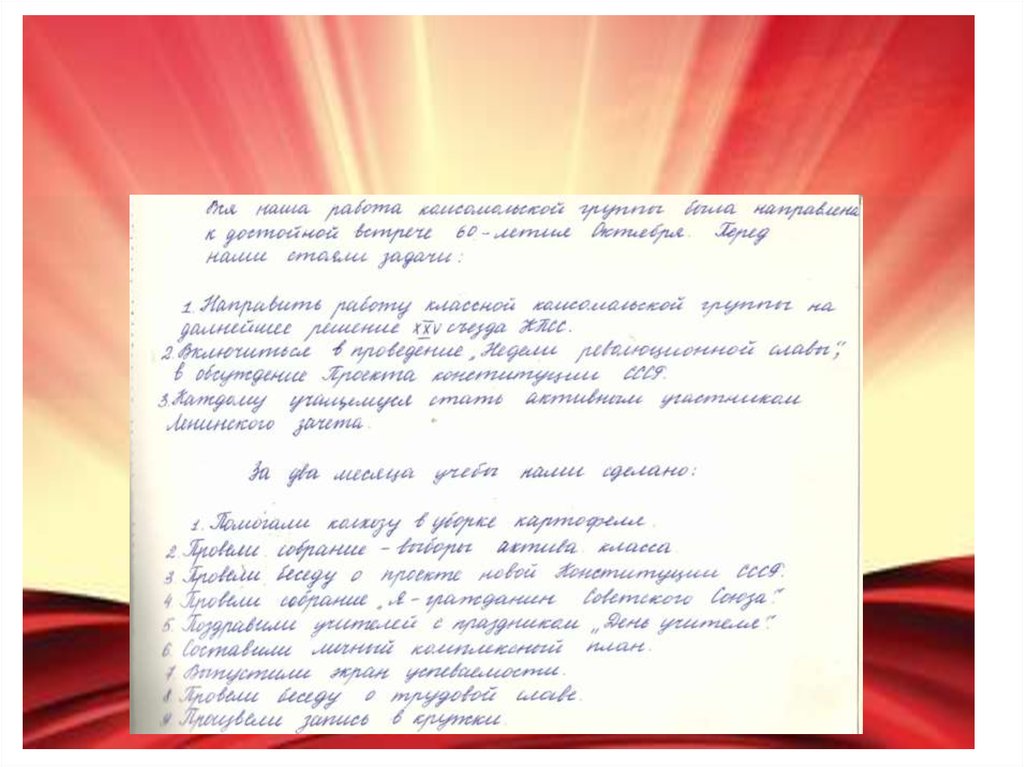 Вся наша работа комсомольской группы была направлена
к достойной встрече 60-летия Октября. Перед
нами стояли задачи:
1. Направить работу классной комсомольской группы на
дальнейшее решение XXV съезда КПСС.
2. Включиться в проведение „Недели революционной славы",
в обсуждение Проекта конституции СССР.
3. Каждому учащемуся стать активным участником
Ленинского зачета.
За два месяца учебы нами сделано:
1. Помогали колхозу в уборке картофеля.
2. Провели собрание – выборы актива класса
3. Провели беседу о проекте новой Конституции СССР.
4 Провели собрание „Я – гражданин Советского Союза".
5. Поздравили учителей с праздником „День учителя".
6. Составили личный комплексный план.
7 Выпустили экран успеваемости.
8. Провели беседу о трудовой славе.
9. Процвели запись в кружки.